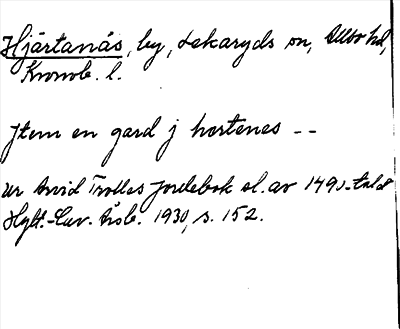 Hjärtanäs, by, Lekaryds sn, Allbo hd,
Kronob. l.
Jtem en gard j hertenes --
ur Arvid Trolles Jordebok sl. av 1490-talet
Hylt.-Cav. Årsb. 1930, s. 152.